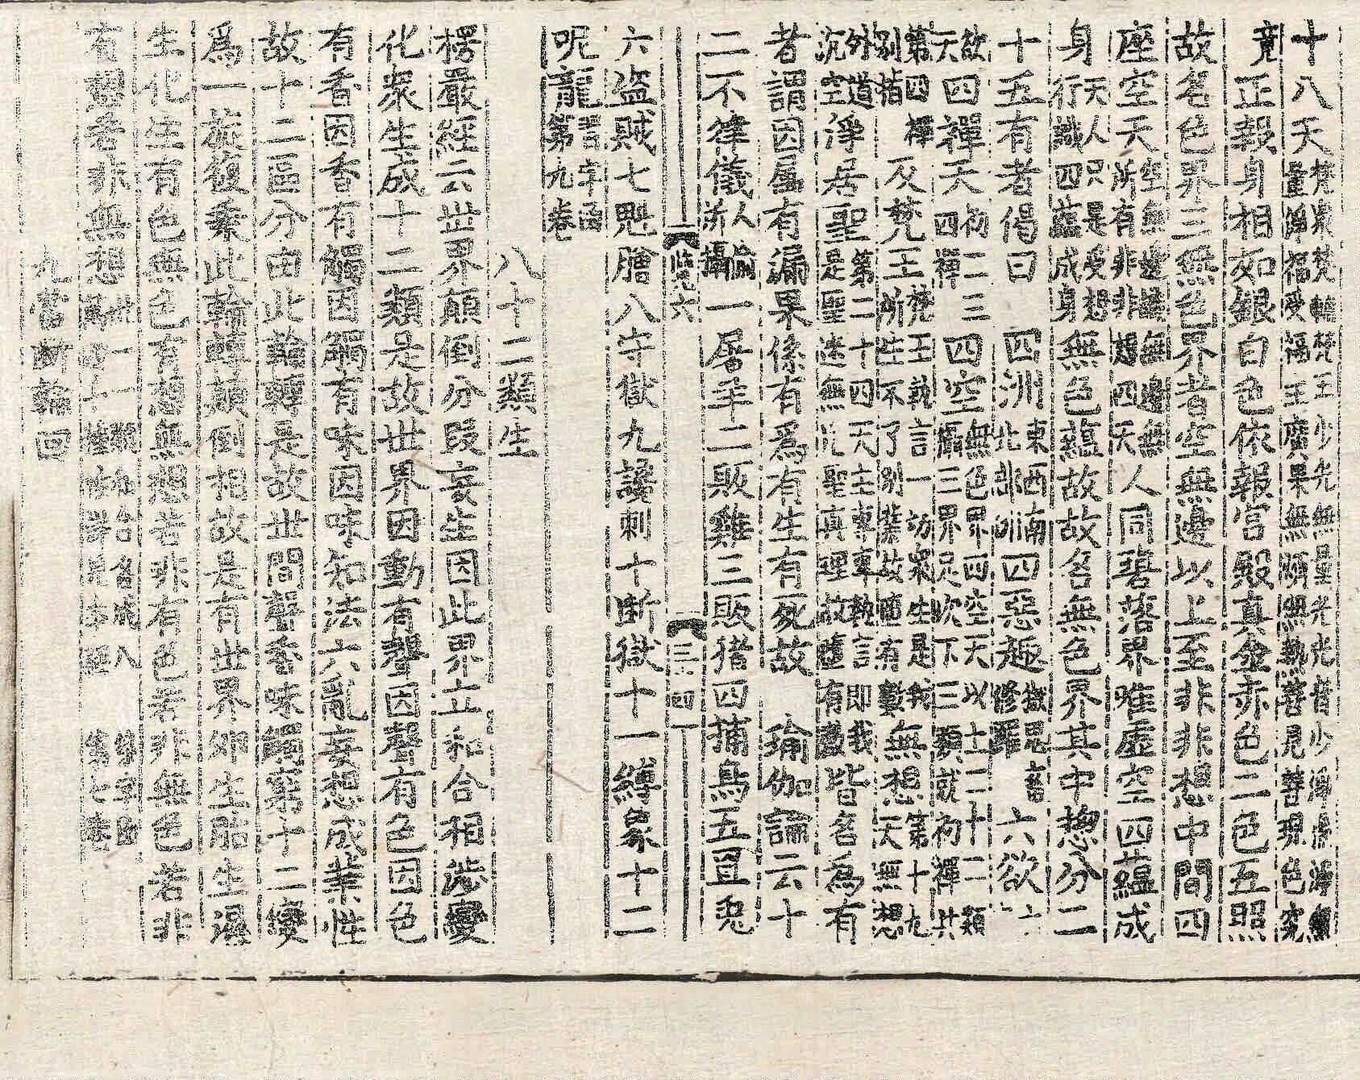 十八天梵衆梵輔梵王少光無量光光音少淨徧淨無量淨福受福王廣果無煩照熱善見善現色究
竟正報身相如銀白色依報宮殿真金赤色二色五照
故名色界三無色界者空無邊以上至非非想中間四
座空天空無邊無邊無所有非非想四天人同碧落界唯虛空四蘊成
身天人只是受想行識四蘊成身無色蘊故故名無色界其中摠分二
十五有者偈曰 四洲東西南北洲四惡趣修羅 六欲
天四禪天初二三四禪四空無色界四空天以上二十二類攝三界足次下三類就初禪共
第四禪別指及梵王梵王執言一切衆生是我所生不了別業故 無想天無想第十九
外道沉空淨居聖第二十四天主 執言即我是聖迷無 聖真理故 有 皆名爲有
者謂因屬有漏果係有爲有生有死故 瑜伽論云十
二不律儀人倫 攝一屠羊二販雞三販猪四捕鳥五罝兎
臨卷六 三 四
六盜賊七魁膾八守獄九讒刺十斷獄十一縛象十二
呪龍習字函第九卷
八十二類生
楞嚴經云世界顛倒分段妄生因此界立和合相涉變
化衆生成十二類是故世界因動有聲因聲有色因色
有香因香有觸因觸有味因味和法六亂妄想成業性
故十二區分由此輪轉是故世間聲香味觸窮十二變
爲一旋復乘此輪轉顛倒相故是有世界卵生胎生濕
生化生有色無色有想無想若非有色若非無色若非
有想若非無想 第七卷
九當斷輪回